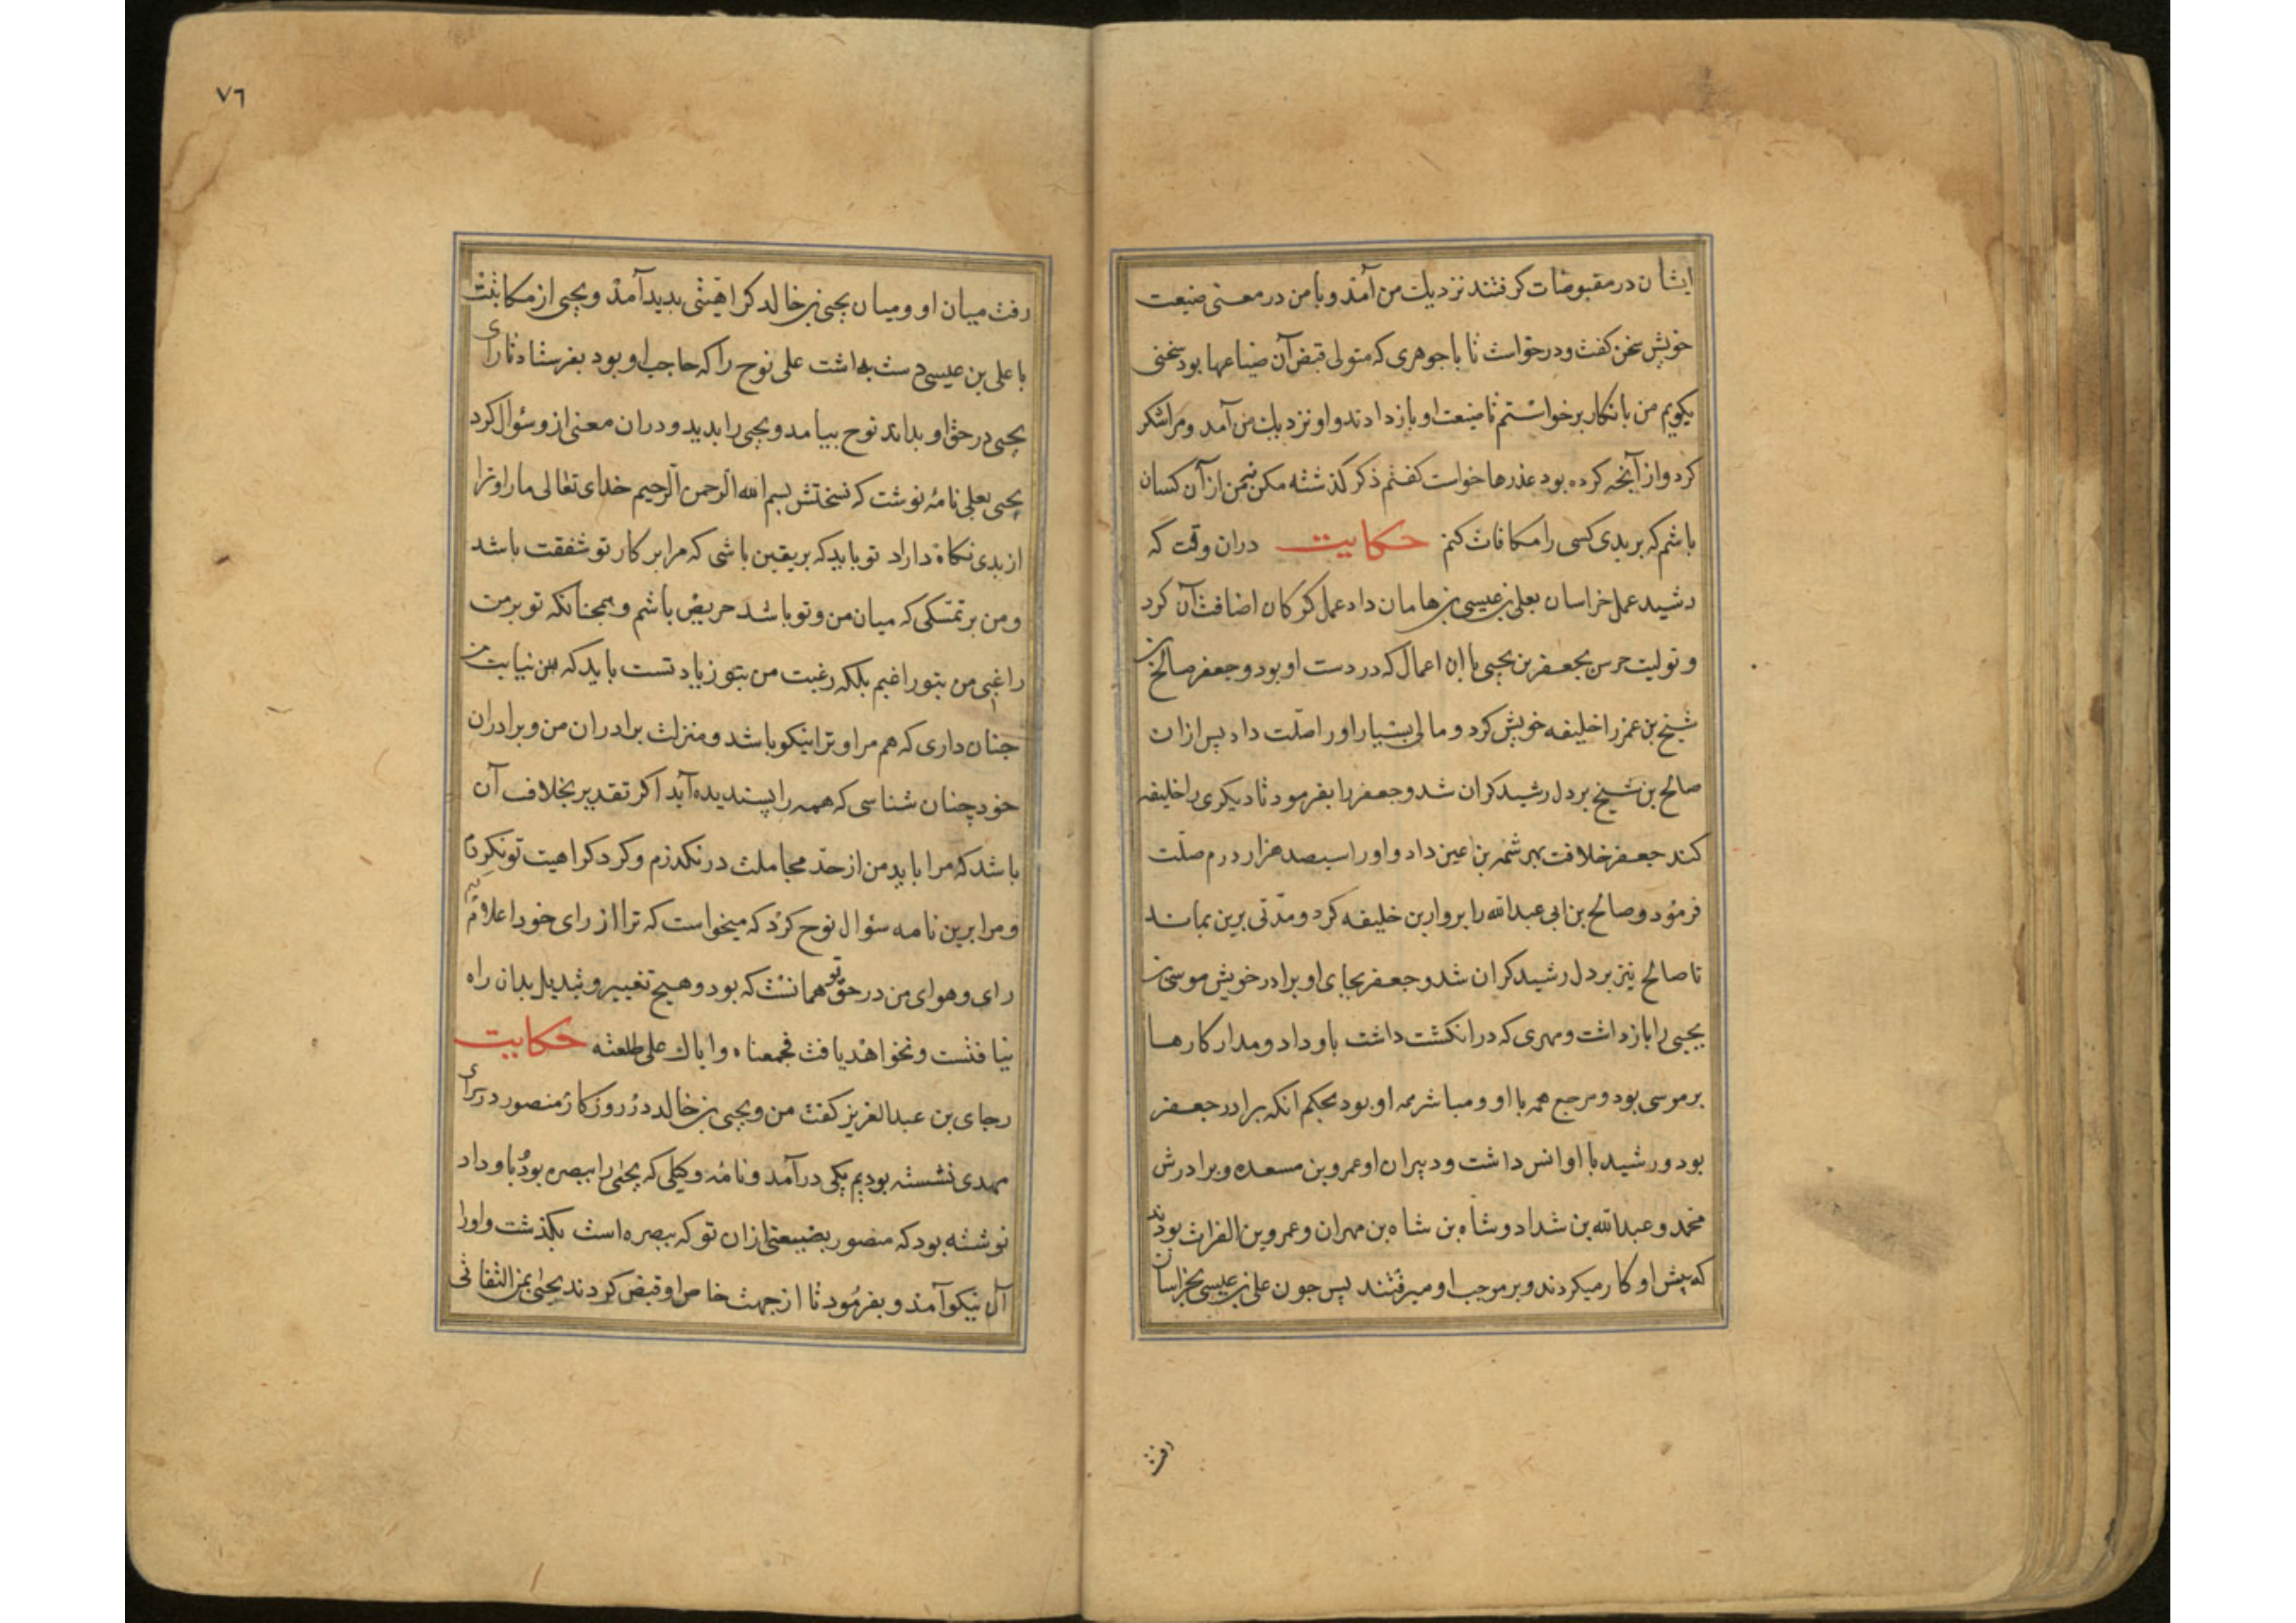 ایشان در مقبوضات کرفتند نزدیك من آمد و با من در معنی ضیعت
خویش سخن کفت و درخواست تا با جوهری که متولی قبض آن ضیاعها بود سخنی
بکویم من بانکار برخواستم تا ضیعت او باز دادند و او نزدیك من آمد و مرا شکر
کرد و از آنچه کرده بود عذرها خواست کفتم ذکر کذشته مکن نه من از آن کسان
باشم که بر بدی کسی را مکافات کنم حکایت دران وقت که
رشید عمل خراسان بعلی بن عیسی بن هامان داد عمل کرکان اضافت آن کرد
و تولیت حرس بجعفر بن یحیی با ان اعمال که در دست او بود و جعفر صالح بن
شیخ بن عمر را خلیفه خویش کرد و مالی بسیار او را صلت داد پس ازان
صالح بن شیخ بر دل رشید کران شد و جعفر را بفرمود تا دیکری را خلیفه
کند جعفر خلافت بهرثمه بن اعین داد و او را سیصد هزار درم صلت
فرمود و صالح بن ابی عبدالله را بر وارین خلیفه کرد و مدتی برین بماند
تا صالح نیز بر دل رشید کران شد و جعفر بجای او برادر خویش موسی بن
یحیی را باز داشت و مهری که در انکشت داشت باو داد و مدار کارها
بر موسی بود و مرجع همه با او و مباشر همه او بود بحکم انکه برادر جعفر
بود و رشید با او انس داشت و دبیران او عمرو بن مسعده و برادرش
محمد و عبدالله بن شداد و شاه بن شاه بن مهران و عمرو بن الفرات بودند
که پیش او کار میکردند و بر موجب او میرفتند پس جون علی بن عیسی بخراسان
رفت
٧٦
رفت میان او و میان یحیی بن خالد کراهیتی بدید آمد و یحیی از مکاتبت
با علی بن عیسی دست بداشت علی نوح را که حاجب او بود بفرستاد تا رای
یحیی در حق او بداند نوح بیامد و یحیی را بدید و دران معنی ازو سؤال کرد
یحیی بعلی نامه نوشت که نسختش بسم الله الرحمن الرحیم خدای تعالی ما را و ترا
از بدی نکاه داراد تو باید که بر یقین باشی که مرا بر کار تو شفقت باشد
و من بر تمسکی که میان من و تو باشد حریص باشم و همچنانکه تو بر من
راغبی من بتو راغبم بلکه رغبت من بتو زیادتست باید که نیابت من
جنان داری که هم مرا و ترا نیکو باشد و منزلت برادران من و برادران
خود چنان شناسی که همه را پسندیده آید اکر تقدیر بخلاف آن
باشد که مرا باید من از حد مجاملت در نکذرم و کرد کراهیت تو نکردم
و مرا برین نامه سؤال نوح کرد که میخواست که ترا از رای خود اعلام
رای و هوای من در حق تو همانست که بود و هیچ تغییر و تبدیل بدان راه
نیافتست و نخواهد یافت فجمعناه وایاك علی طاعته حکایت
رجای بن عبدالعزیز کفت من و یحیی بن خالد در روزکار منصور در سرای
مهدی نشسته بودیم یکی درآمد و نامه وکیلی که یحیی را ببصره بود باو داد
نوشته بود که منصور بضیعتی ازان تو که ببصره است بکذشت و او را
آن نیکو آمد و بفرمود تا از جهت خاص او قبض کردند یحیی بمن التفاتی